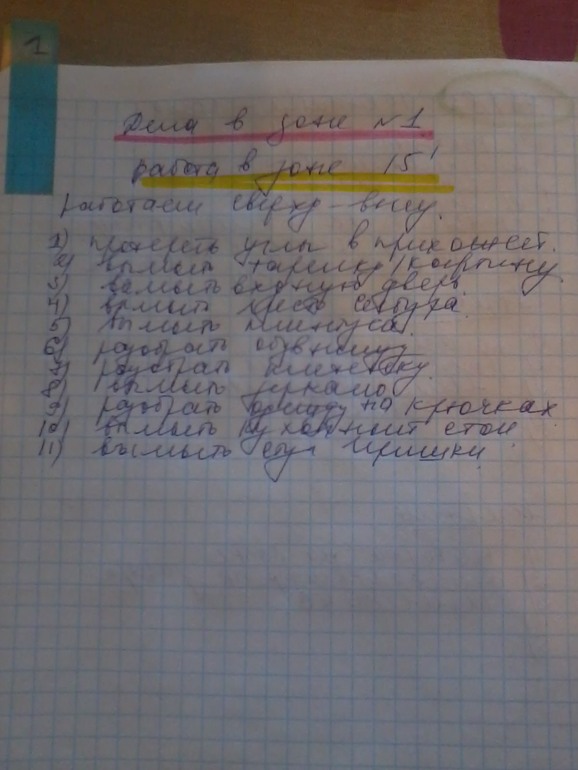 1
Дела в зоне №1
работа в зоне 15'
работаем сверху - вниз.
1) протереть углы в прихожей.
2) вымыть тарелку/картину
3) вымыть входную дверь.
4) вымыть место
5) вымыть плинтуса.
6) разобрать обувницу
7) разобрать
8) вымыть зеркало
9) разобрать одежду на крючках.
10) вымыть кухонный стол
11) вымыть стул Иришки